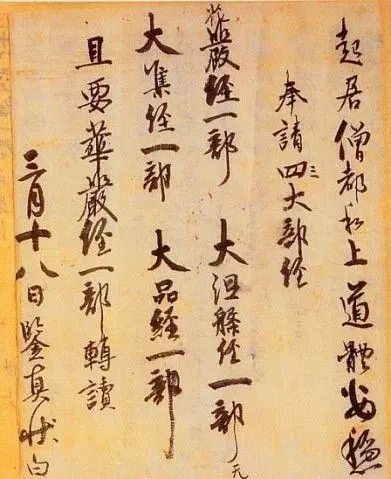 起居僧都和上道體安穩
奉請四三大部經
花嚴經一部 大涅槃經一部无
大集經一部 大品經一部
且要華嚴經一部轉讀
三月十八日鑒真狀白